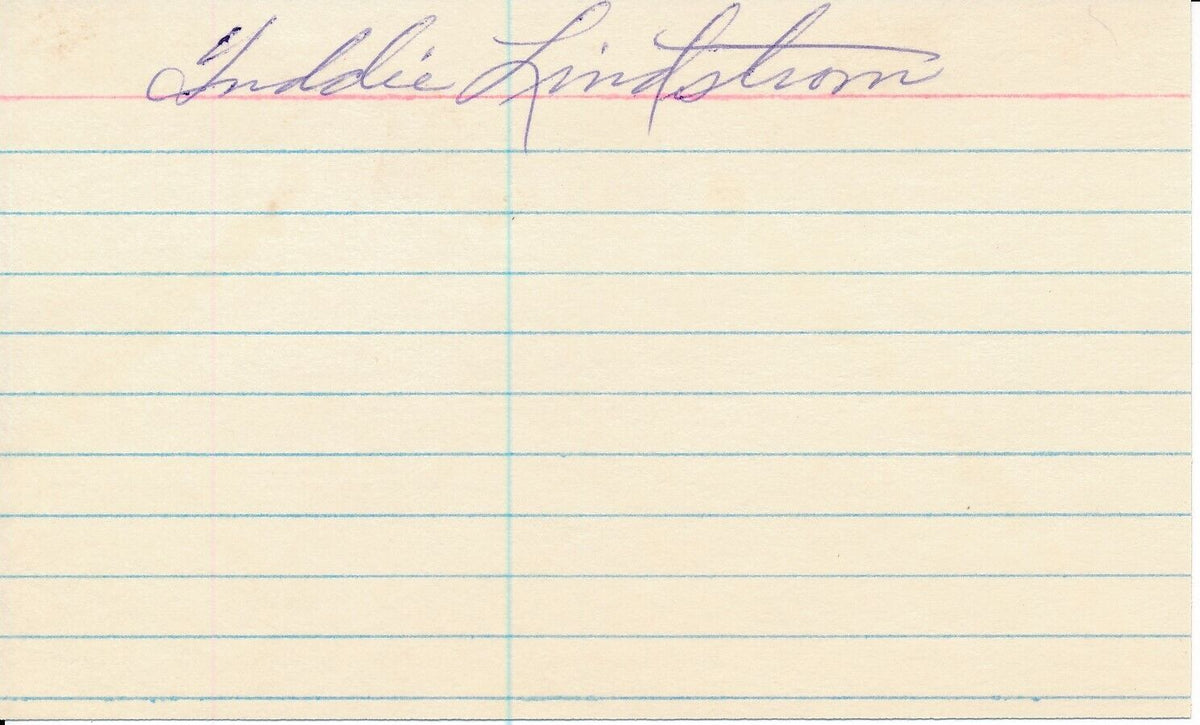 Freddie Lindstrom